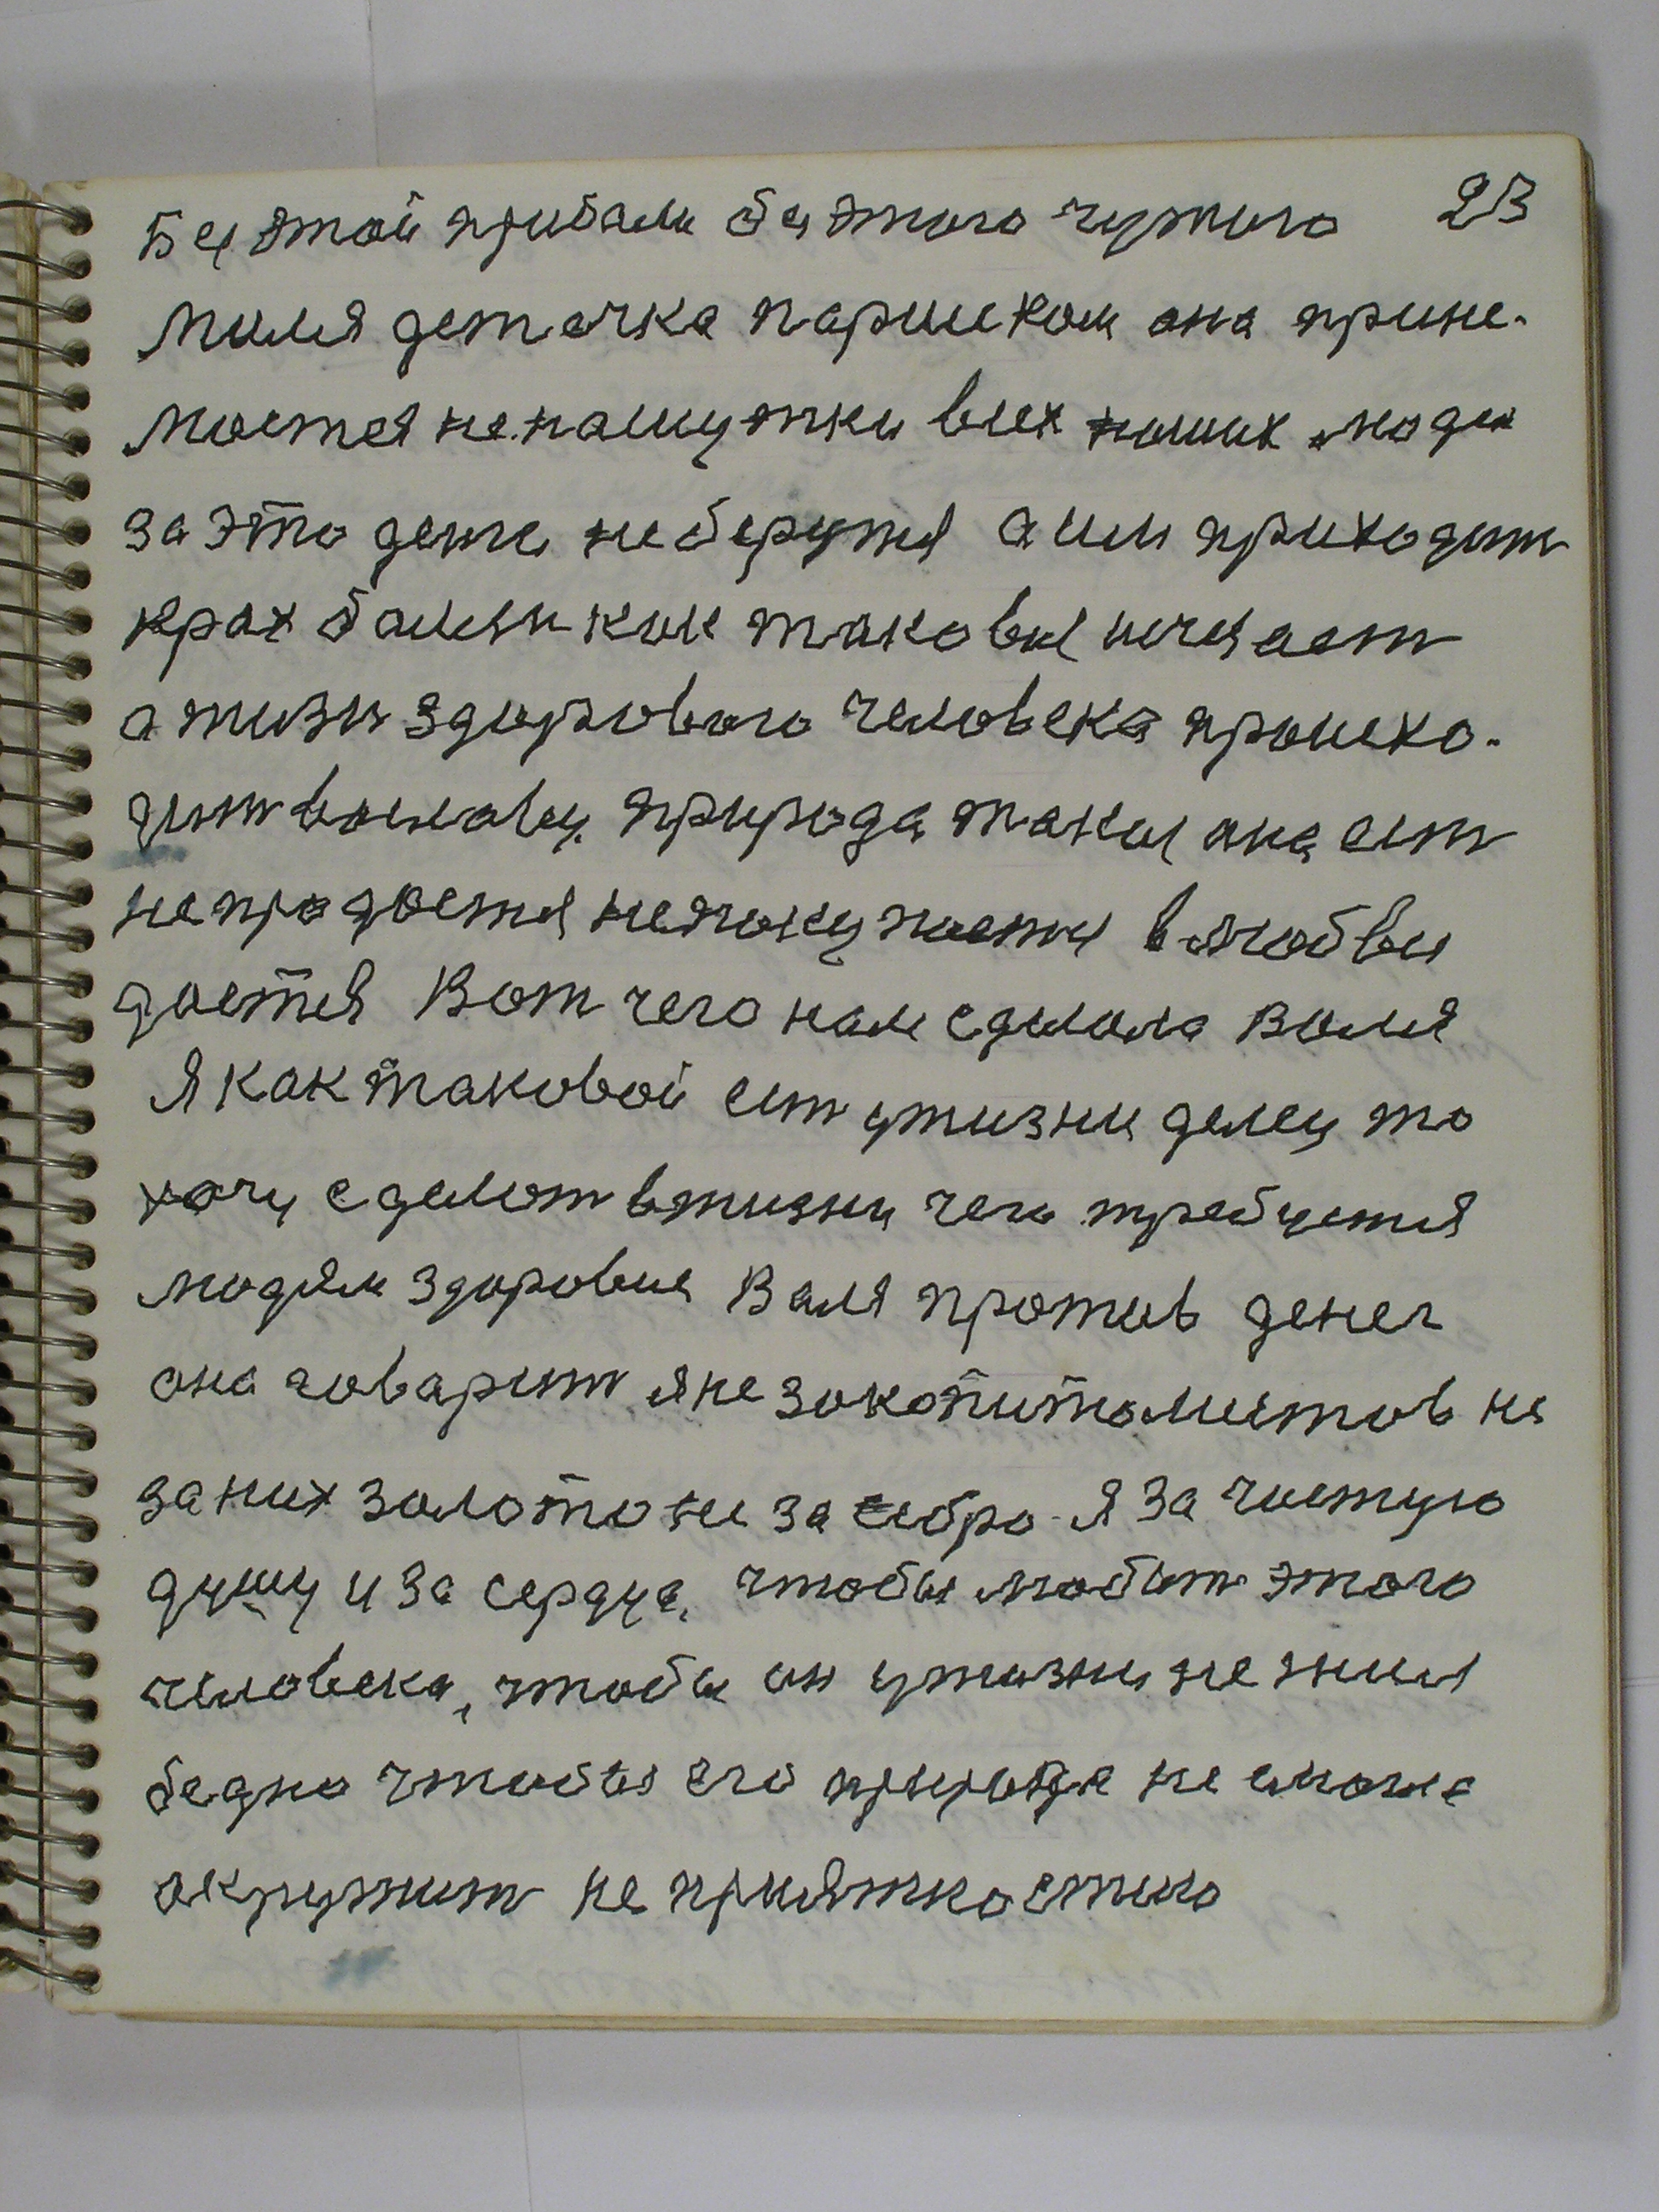 23
Без этой прибали без этого чужого
миля деточка паршеком она прине-
мается не на шутки всех наших люде
за это дение не берутся а им приходит
крах болезн как таковы исчезает
а жизн здорового человека происхо-
дит вославу. природа таких она ест
не продается не покупается в любви
дается Вот чего нам сделала Валя
Я как таковой ест ужизни делец то
хочу сделот вжизни чего требуется
людям здоровия Валя против денег
она говарит я не за копиталистов не
за них золото не за себро Я за чистую
душу и за сердце, чтобы любит этого
человека, чтобы он ужизни не жил
бедно чтобы его природа не смогла
окружит не приятностию